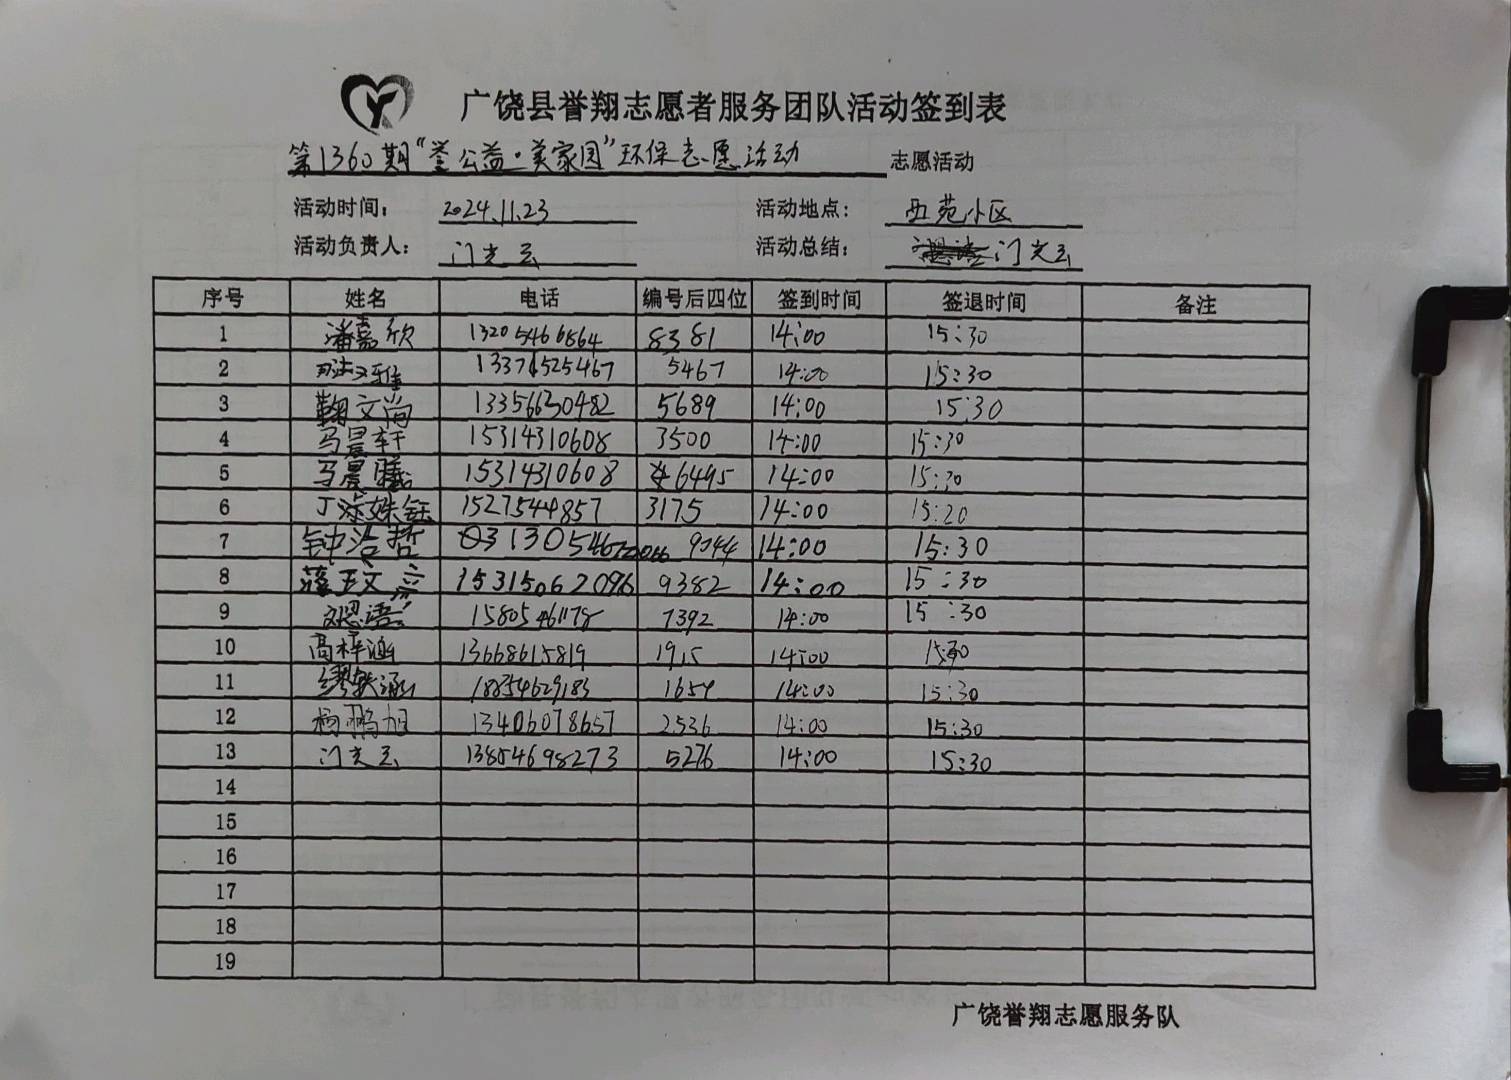 广饶县誉翔志愿者服务团队活动签到表
第1360期“誉公益·美家园”环保志愿活动 志愿活动
活动时间： 2024.11.23 活动地点： 西苑小区
活动负责人： 门光云 活动总结： 门光云
序号 姓名 电话 编号后四位 签到时间 签退时间 备注
1 潘嘉欣 13205466864 8381 14:00 15:30
2 13371525467 5467 14:00 15:30
3 鞠文尚 13356630482 5689 14:00 15:30
4 马晨轩 15314310608 3500 14:00 15:30
5 马晨曦 15314310608 6495 14:00 15:30
6 丁 15275444857 3175 14:00 15:20
7 钟浩哲 14:00 15:30
8 15315062096 9382 14:00 15:30
9 思语 15805461178 7392 14:00 15:30
10 高梓涵 13668615819 1915 14:00 15:30
11 18854629183 1659 14:00 15:30
12 杨鹏旭 13406078657 2536 14:00 15:30
13 门光云 13854698273 5276 14:00 15:30
14
15
16
17
18
19
广饶誉翔志愿服务队